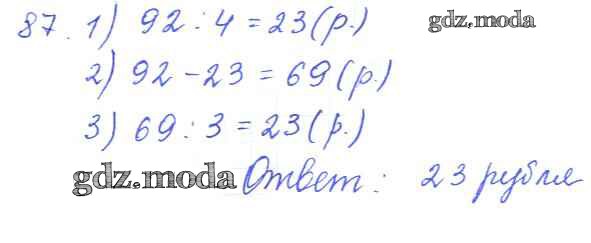 87. 1) 92 : 4 = 23 (р.)
gdz.moda
2) 92 - 23 = 69 (р.)
3) 69 : 3 = 23 (р.)
gdz.moda Ответ: 23 рубля